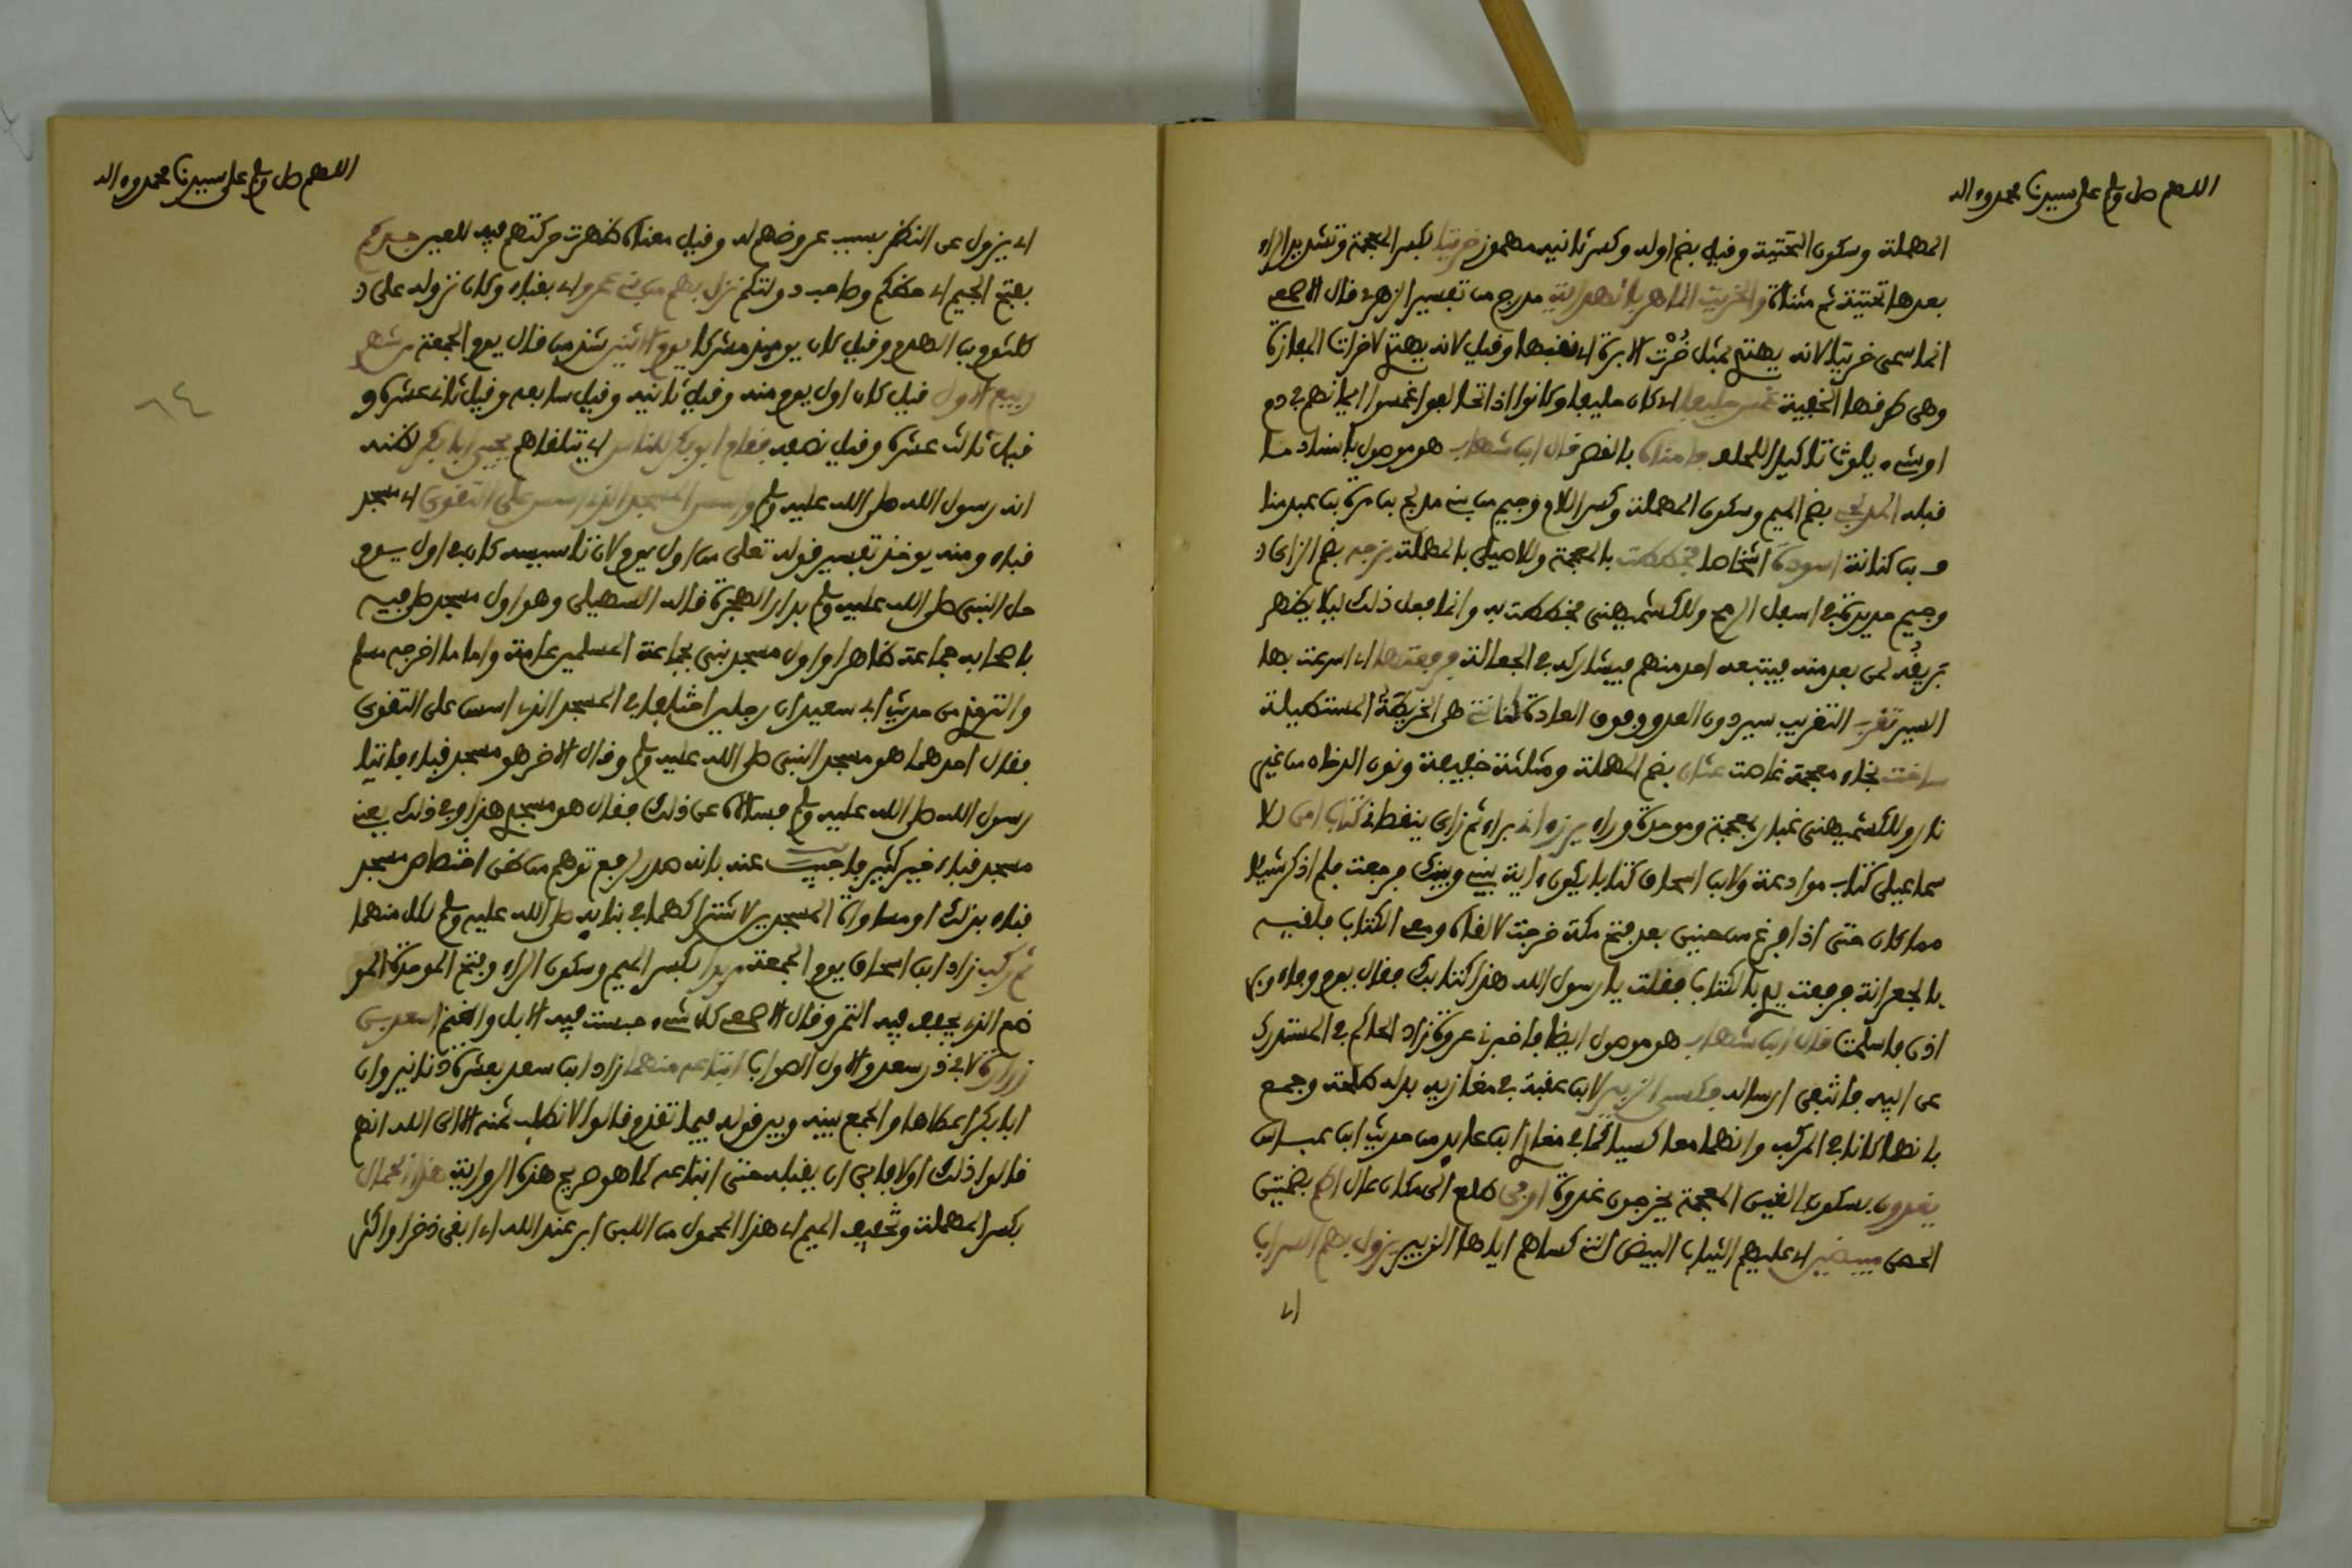 اللهم صل وسلم على سيدنا محمد وءاله
المهملة وسكون التحتية وقيل بضم اوله وكسر ثانيه مهموز خريتا بكسر المعجمة وتشديد الراء
بعدها تحتية ثم مثناة والخريت الماهر بالهداية مدرج من تفسير الزهري قال الاصمعي
انما سمى خريتا لانه يهتدي بمثل خُرْت الابرة اي نقبها وقيل لانه يهتدي لاخرات المفازة
وهى طرقها الخفية غمس حليفا اي كان حليفا وكانوا اذا تحالفوا غمسوا ايمانهم في دم
او شيء يلوث تاكيدا للحلف فامناه بالقصر قال ابن شهاب هو موصول باسناد ما
قبله المدلجي بضم الميم وسكون المهملة وكسر اللام وجيم من بني مدلج بن مرة بن عبد منا
ة بن كنانة اسودة اشخاصا فخططت بالمعجمة وللاصيلى بالمهملة بزجه بضم الزاى
وجيم حديدة في اسفل الرمح وللكشميهنى فخططت به وانما فعل ذلك ليلا يظهر
بريقُه لمن بعد منه فيتبعه احد منهم فيشاركه في الجعالة فرفعتها اي اسرعت بها
السير تقرب التقريب سير دون العدو وفوق العادة كنانتي هى الخريطة المستطيلة
ساخت بخاء معجمة غاصت عثان بضم المهملة ومثلثة خفيفة ونون الدخان من غير
نار وللكشميهنى غبار بمعجمة وموحدة وراء يرزءاني براء ثم زاى ينقصاني كتاب امن للا
سماعيلى كتاب موادعة ولابن اسحاق كتابا يكون ءاية بيني وبينك فرجعت فلم اذكر شيئا
مما كان حتى اذا فرغ من حنين بعد فتح مكة خرجت لالقاه ومعى الكتاب فلقيته
بالجعرانة فرفعت يدي بالكتاب فقلت يا رسول الله هذا كتابك فقال يوم وفاء وبر
ادن فاسلمت قال ابن شهاب هو موصول ايضا فاخبرني عروة زاد الحاكم في المستدرك
عن ابيه فانتفى ارساله فكسى الزبير لابن عقبة في مغازيه بدله طلحة وجمع
بانهما كانا في الركب وانهما معا كسيا كما في مغازي ابن عايد من حديث ابن عباس
يغدون بسكون الغين المعجمة يخرجون غدوة اوفى طلع الى مكان عال اطم بضمتين
الحصن مبيضين اي عليهم الثياب البيض التي كساهم اياها الزبير يزول بهم السراب
اي
اللهم صل وسلم على سيدنا محمد وءاله
اي يزول عن النظر بسبب عروضهم له وقيل معناه ظهرت حركتهم فيه للعين جدكم
بفتح الجيم اي حظكم وصاحب دولتكم نزل بهم من بني عمرو اي بقباء وكان نزوله على
كلثوم بن الهدم وقيل كان يومئذ مشركا يوم الاثنين شذ من قال يوم الجمعة من شهر
ربيع الاول قيل كان اول يوم منه وقيل ثانيه وقيل سابعه وقيل ثاني عشره و
قيل ثالث عشره وقيل نصفه فقام ابو بكر للناس اي يتلقاهم يحيى ابا بكر لظنه
انه رسول الله صلى الله عليه وسلم واسس المسجد الذي اسس على التقوى اي مسجد
قباء ومنه يوخذ تفسير قوله تعلى من اول يوم لان تاسيسه كان في اول يوم
حل النبى صلى الله عليه وسلم بدار الهجرة قاله السهيلى وهو اول مسجد صلى فيه
باصحابه جماعة ظاهرا واول مسجد بنى لجماعة المسلمين عامة واما ما اخرجه مسلم
والترمذي من حديث ابي سعيد ان رجلين اختلفا في المسجد الذي اسس على التقوى
فقال احدهما هو مسجد النبى صلى الله عليه وسلم وقال الاخر هو مسجد قباء فاتيا
رسول الله صلى الله عليه وسلم فسالاه عن ذلك فقال هو مسجدي هذا وفي ذلك يعني
مسجد قباء خير كثير فاجيب عنه بانه صدر لرفع توهم من ظن اختصاص مسجد
قباء بذلك او مساواة المسجدين لاشتراكهما في بنايه صلى الله عليه وسلم لكل منهما
ثم ركب زاد ابن اسحاق يوم الجمعة مربدا بكسر الميم وسكون الراء وفتح الموحدة المو
ضع الذي يجفف فيه التمر وقال الاصمعي كل شيء حبست فيه الابل والغنم اسعد بن
زرارة لابي ذر سعد والاول الصواب ابتاعه منهما زاد ابن سعد بعشرة دنانير وان
ابا بكر اعطاها والجمع بينه وبين قوله فيما تقدم قالوا لا نطلب ثمنه الا الى الله انهم
قالوا ذلك اولا فابى ان يقبله حتى ابتاعه كما هو صريح هذه الرواية هذا الحمال
بكسر المهملة وتخفيف الميم اي هذا المحمول من اللبن ابر عند الله اي ابقى ذخرا واكثر
٦٤